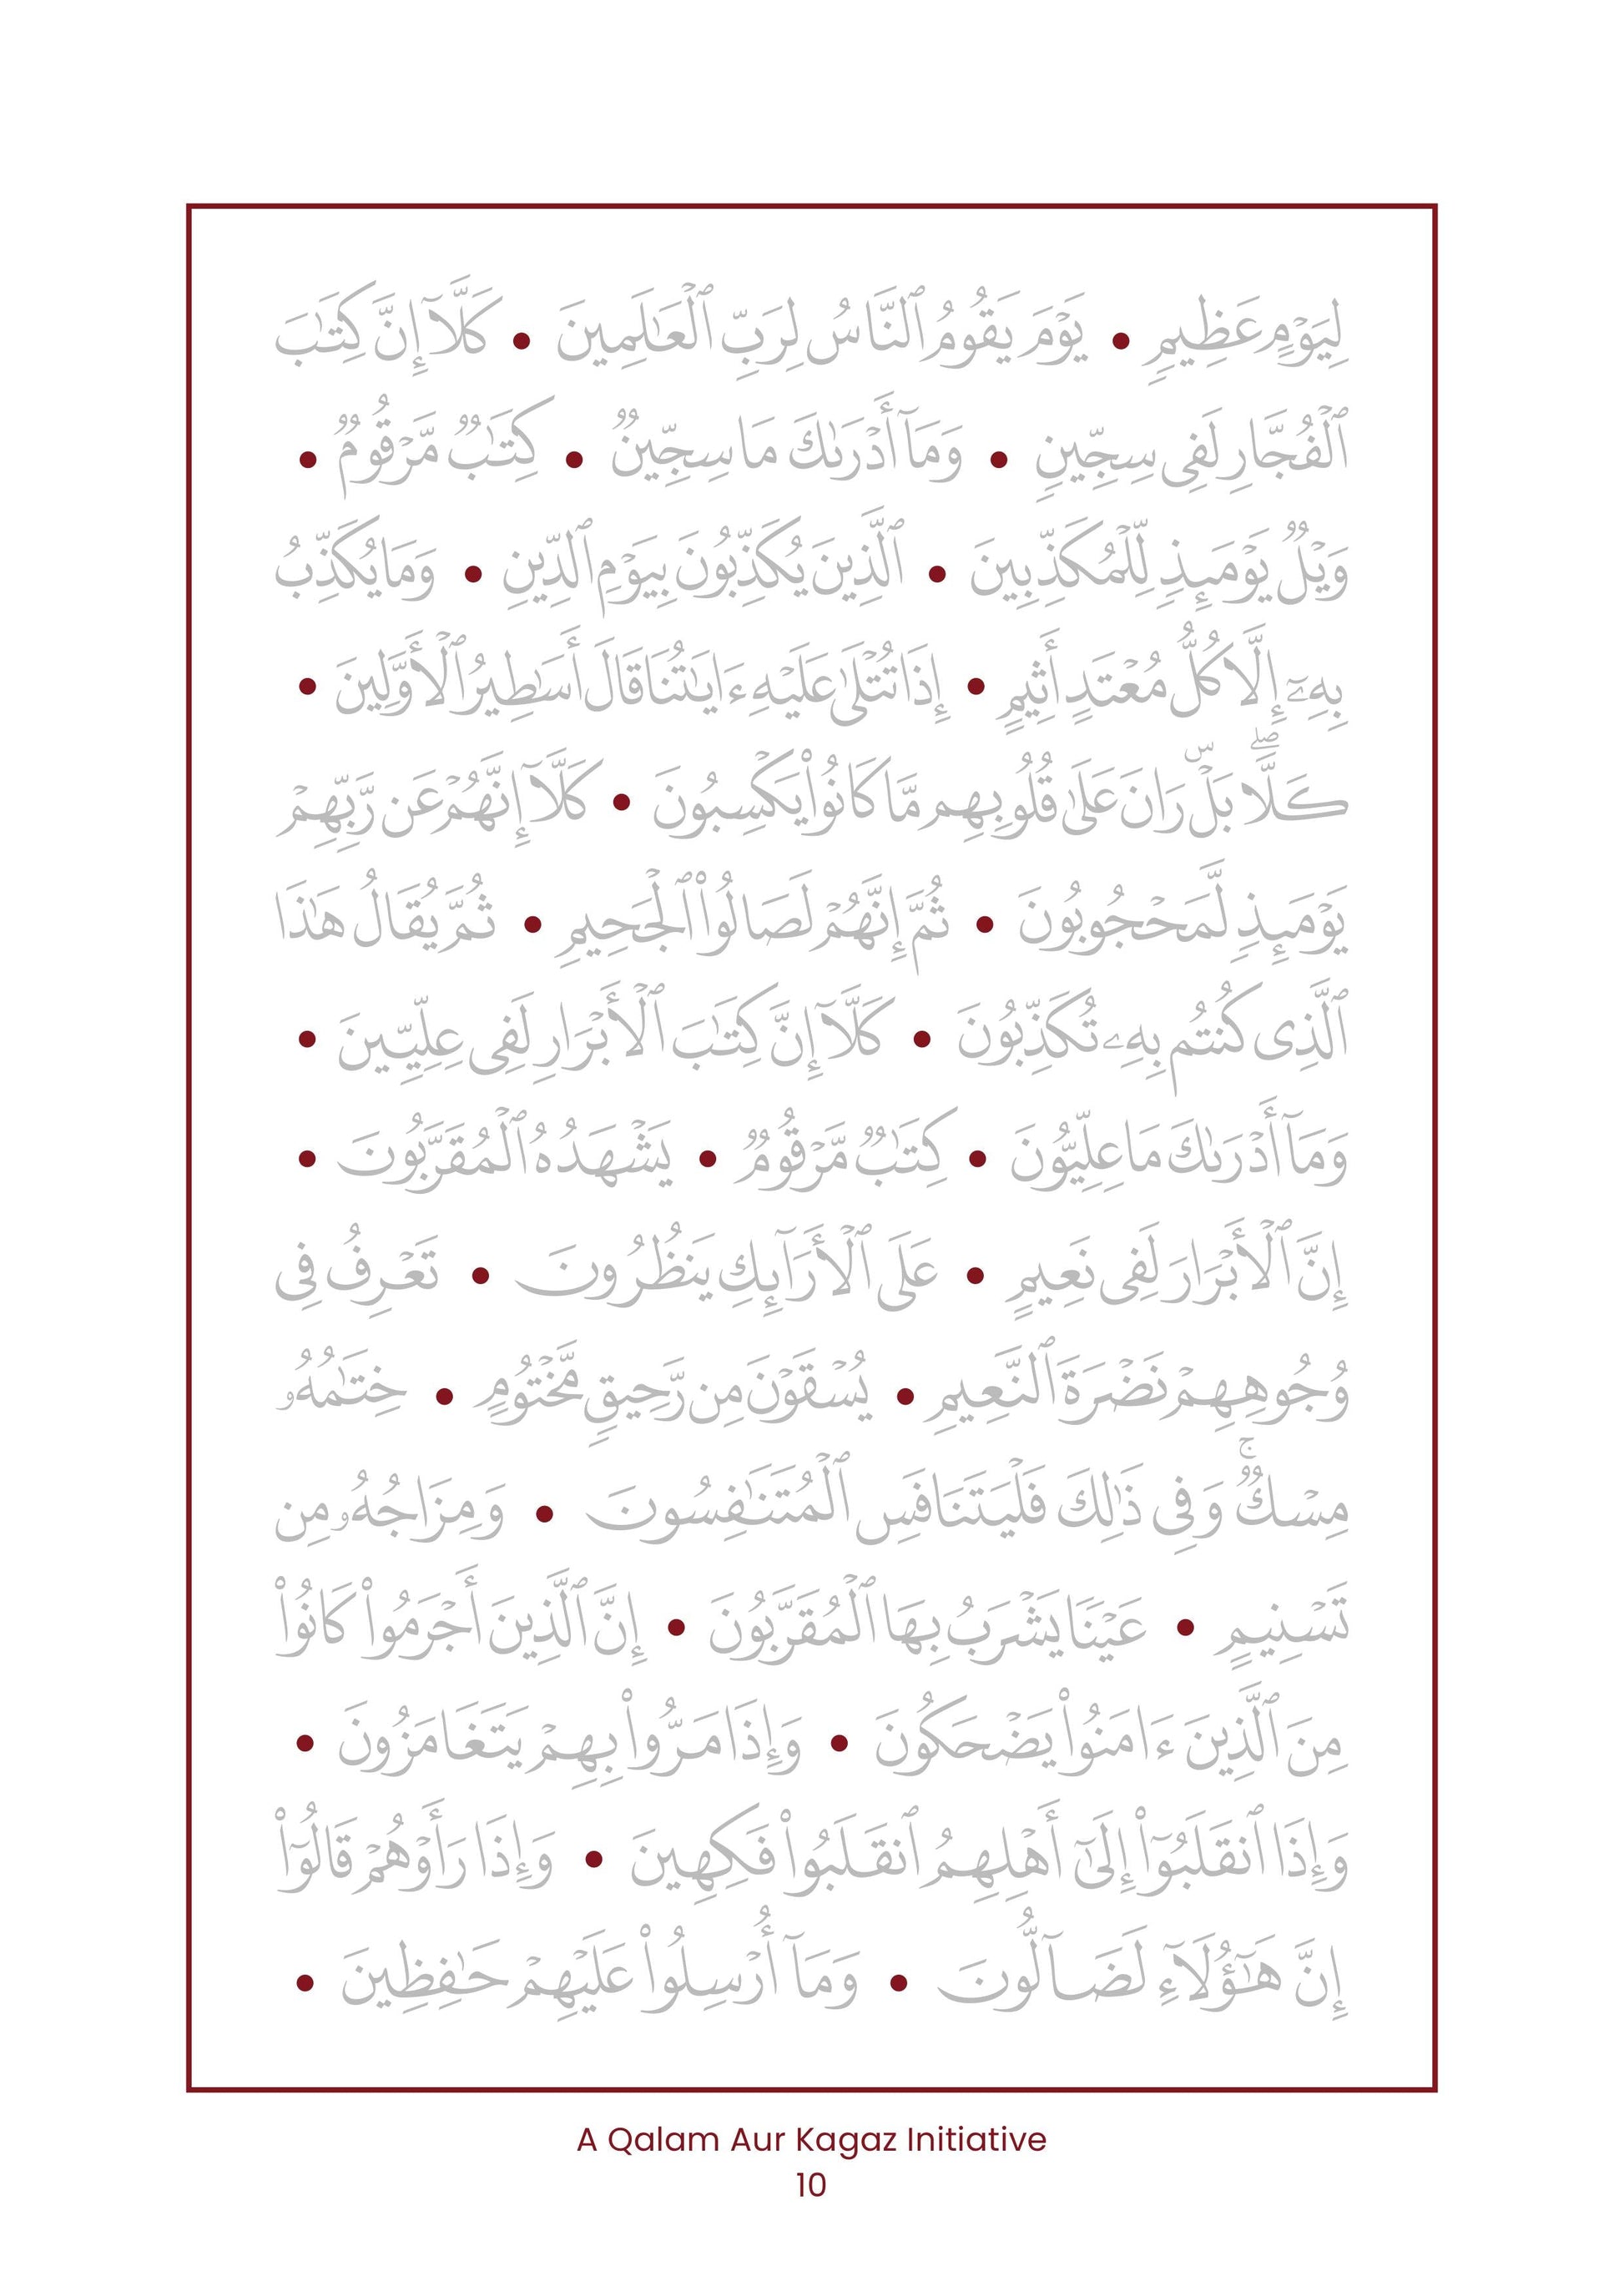 لِيَوْمٍ عَظِيمٍ • يَوْمَ يَقُومُ ٱلنَّاسُ لِرَبِّ ٱلْعَٰلَمِينَ • كَلَّآ إِنَّ كِتَٰبَ
ٱلْفُجَّارِ لَفِى سِجِّينٍ • وَمَآ أَدْرَىٰكَ مَا سِجِّينٌ • كِتَٰبٌ مَّرْقُومٌ •
وَيْلٌ يَوْمَئِذٍ لِّلْمُكَذِّبِينَ • ٱلَّذِينَ يُكَذِّبُونَ بِيَوْمِ ٱلدِّينِ • وَمَا يُكَذِّبُ
بِهِۦٓ إِلَّا كُلُّ مُعْتَدٍ أَثِيمٍ • إِذَا تُتْلَىٰ عَلَيْهِ ءَايَٰتُنَا قَالَ أَسَٰطِيرُ ٱلْأَوَّلِينَ •
كَلَّا ۖ بَلْ ۜ رَانَ عَلَىٰ قُلُوبِهِم مَّا كَانُوا۟ يَكْسِبُونَ • كَلَّآ إِنَّهُمْ عَن رَّبِّهِمْ
يَوْمَئِذٍ لَّمَحْجُوبُونَ • ثُمَّ إِنَّهُمْ لَصَالُوا۟ ٱلْجَحِيمِ • ثُمَّ يُقَالُ هَٰذَا
ٱلَّذِى كُنتُم بِهِۦ تُكَذِّبُونَ • كَلَّآ إِنَّ كِتَٰبَ ٱلْأَبْرَارِ لَفِى عِلِّيِّينَ •
وَمَآ أَدْرَىٰكَ مَا عِلِّيُّونَ • كِتَٰبٌ مَّرْقُومٌ • يَشْهَدُهُ ٱلْمُقَرَّبُونَ •
إِنَّ ٱلْأَبْرَارَ لَفِى نَعِيمٍ • عَلَى ٱلْأَرَآئِكِ يَنظُرُونَ • تَعْرِفُ فِى
وُجُوهِهِمْ نَضْرَةَ ٱلنَّعِيمِ • يُسْقَوْنَ مِن رَّحِيقٍ مَّخْتُومٍ • خِتَٰمُهُۥ
مِسْكٌ ۚ وَفِى ذَٰلِكَ فَلْيَتَنَافَسِ ٱلْمُتَنَٰفِسُونَ • وَمِزَاجُهُۥ مِن
تَسْنِيمٍ • عَيْنًا يَشْرَبُ بِهَا ٱلْمُقَرَّبُونَ • إِنَّ ٱلَّذِينَ أَجْرَمُوا۟ كَانُوا۟
مِنَ ٱلَّذِينَ ءَامَنُوا۟ يَضْحَكُونَ • وَإِذَا مَرُّوا۟ بِهِمْ يَتَغَامَزُونَ •
وَإِذَا ٱنقَلَبُوٓا۟ إِلَىٰٓ أَهْلِهِمُ ٱنقَلَبُوا۟ فَكِهِينَ • وَإِذَا رَأَوْهُمْ قَالُوٓا۟
إِنَّ هَٰٓؤُلَآءِ لَضَآلُّونَ • وَمَآ أُرْسِلُوا۟ عَلَيْهِمْ حَٰفِظِينَ •
A Qalam Aur Kagaz Initiative
10